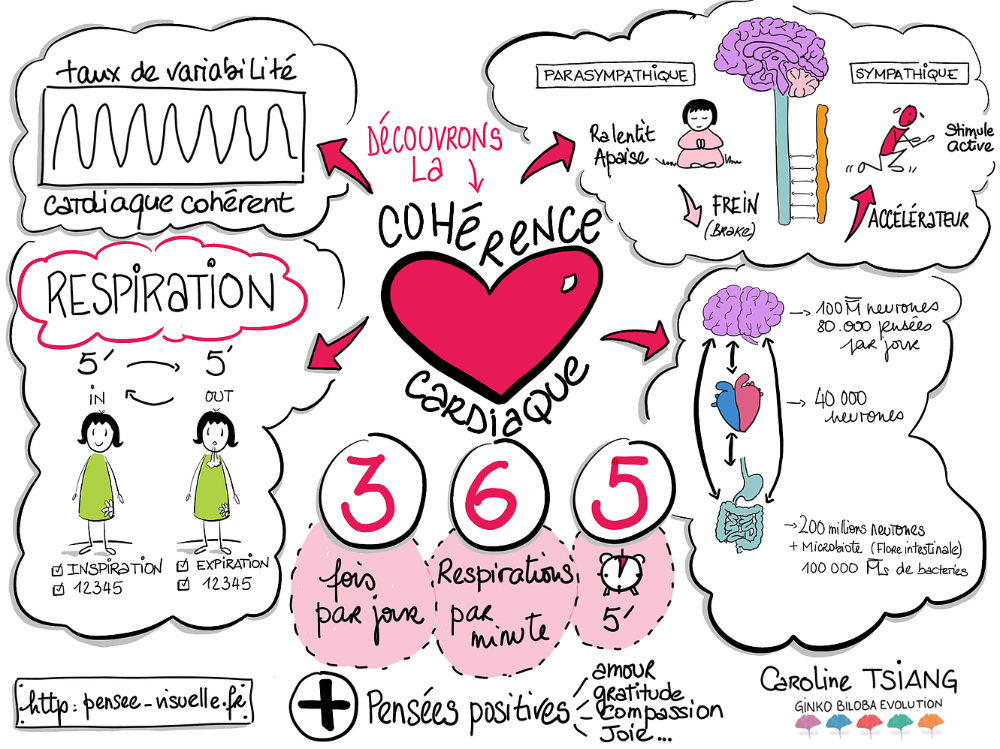 taux de variabilité
cardiaque cohérent
DÉCOUVRONS
La
COHÉRENCE
CARDIAQUE
PARASYMPATHIQUE
SYMPATHIQUE
Ralentit
Apaise
Stimule
active
FREIN
(Brake)
ACCÉLÉRATEUR
RESPIRATION
5' 5'
IN OUT
INSPIRATION
12345
EXPIRATION
12345
100 M neurones
80.000 pensées
par jour
40 000
neurones
200 millions neurones
+ Microbiote (Flore intestinale)
100 000 Ms de bacteries
3 6 5
fois
par jour
Respirations
par
minute
5'
+ Pensées positives
amour
gratitude
compassion
Joie...
http: pensee-visuelle.fr
Caroline TSIANG
GINKO BILOBA EVOLUTION